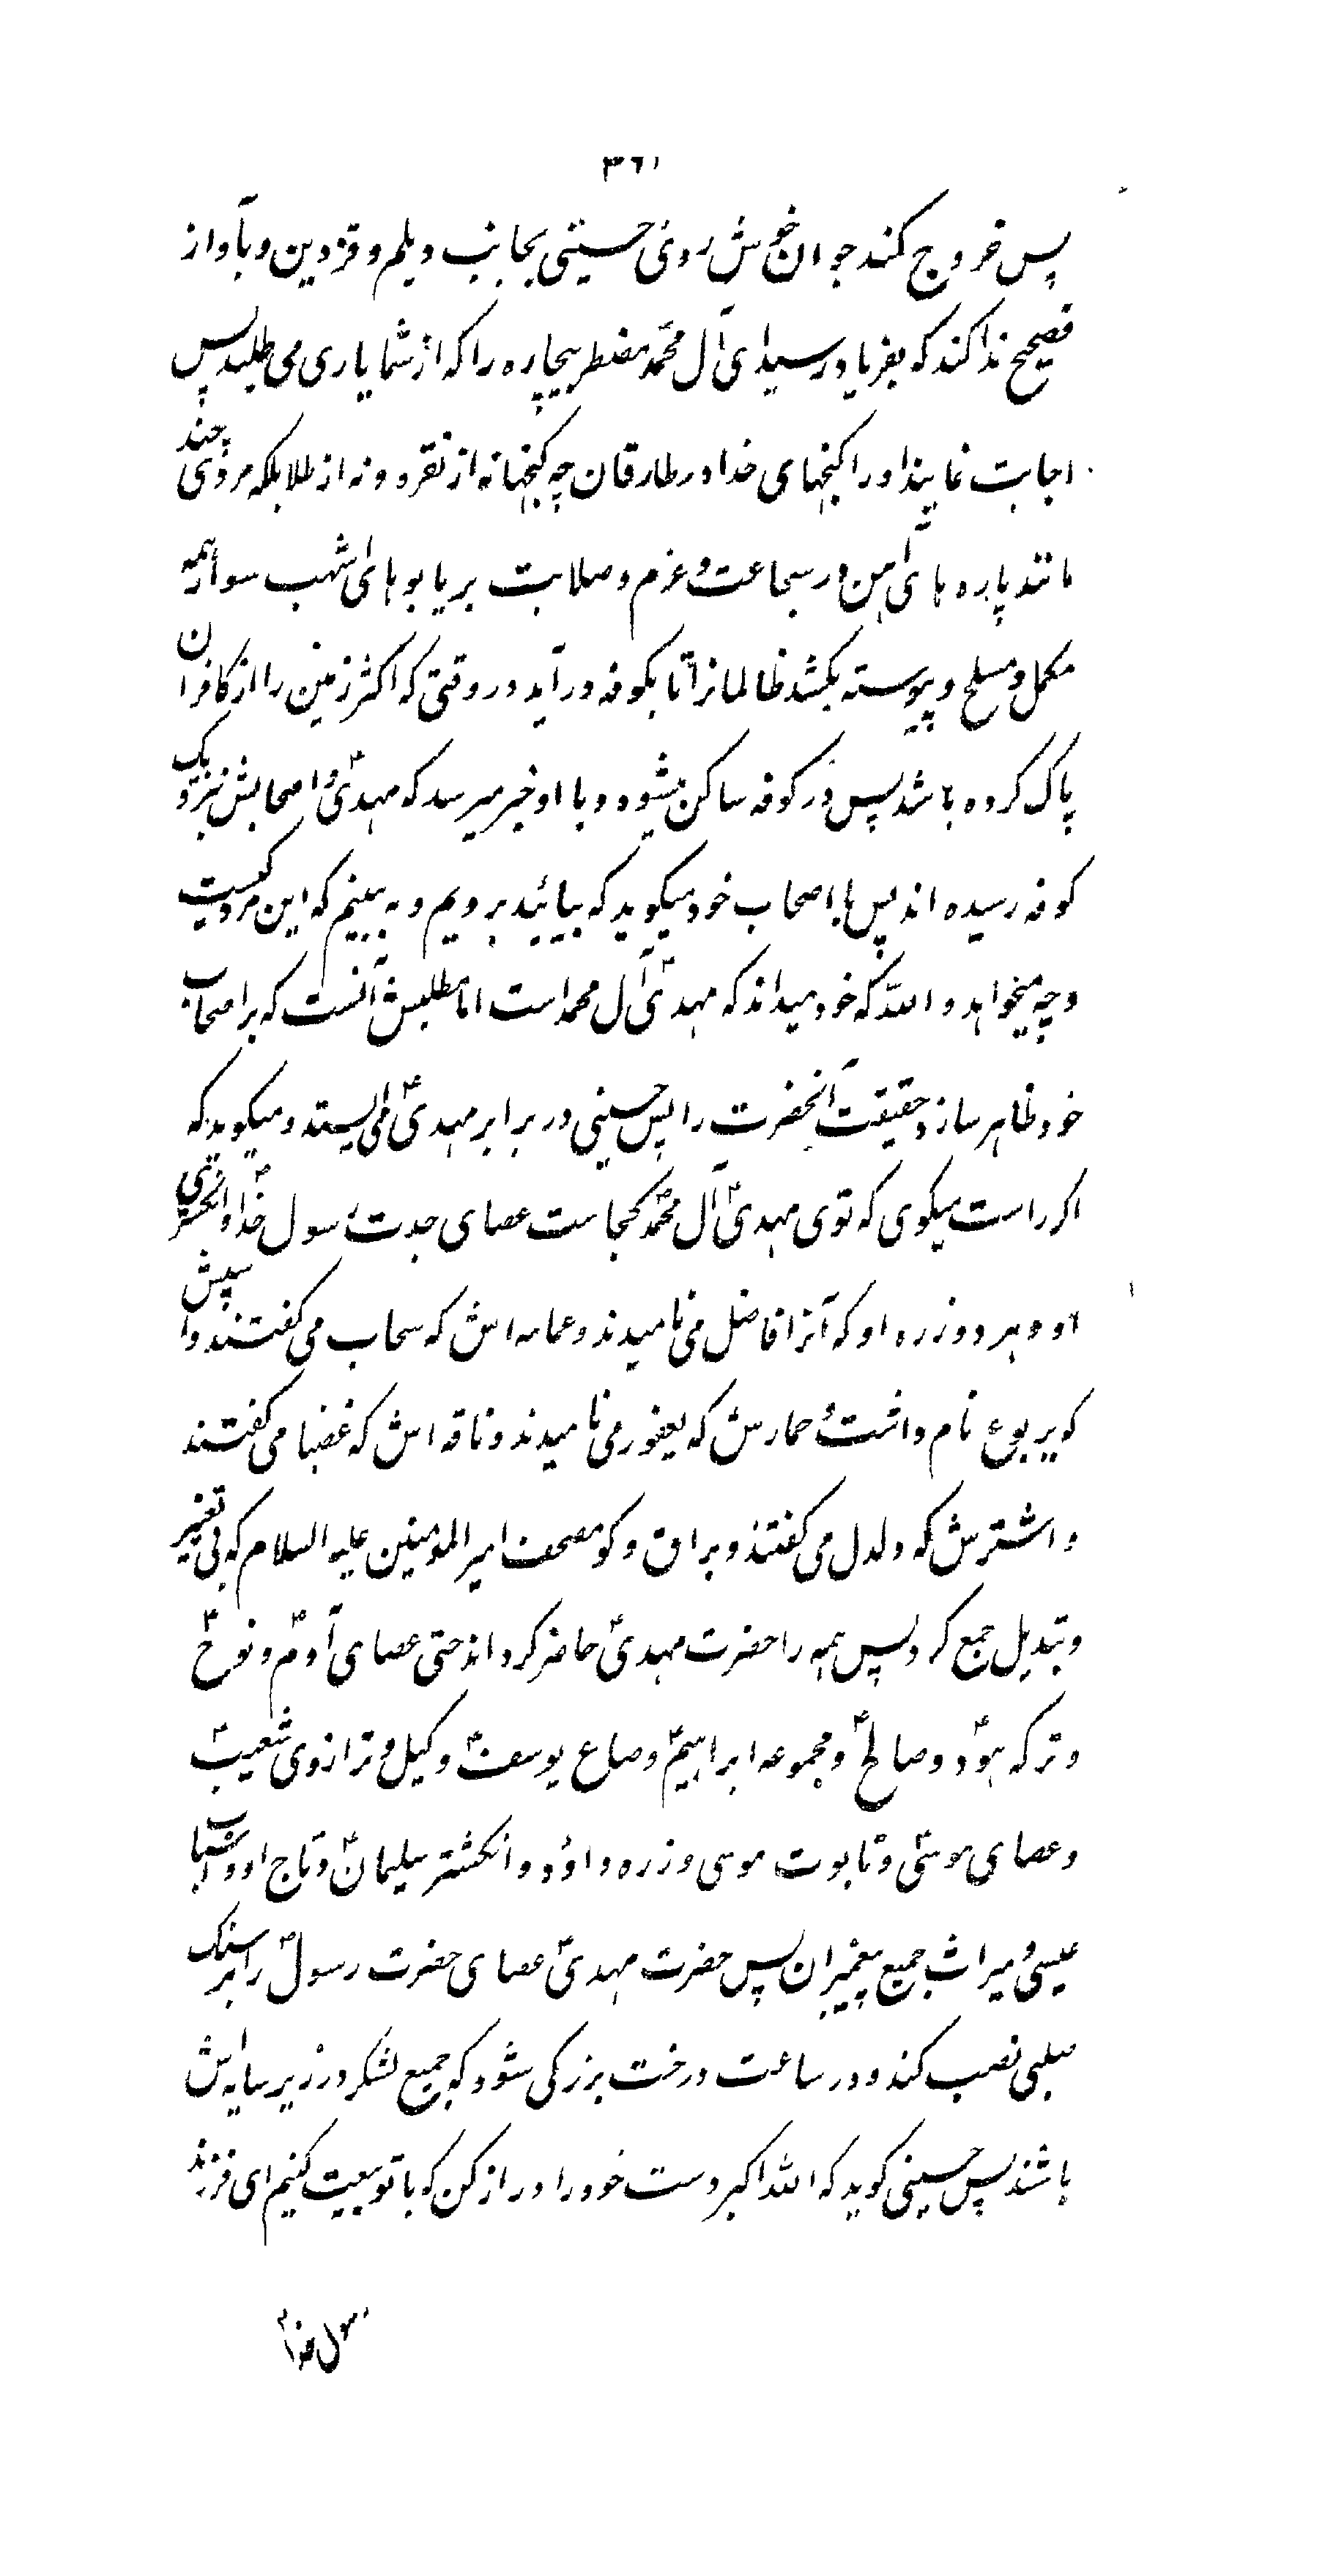 ۳۶۱
پس خروج کند جوان خوش روئی حسینی بجانب دیلم و قزوین و بآواز
فصیح ندا کند که بفریاد رسید ای آل محمّد مضطر بیچاره را که از شما یاری می طلبد پس
اجابت نمایند او را کنجهای خدا در طالقان چه کنجها نه از نقره و نه از طلا بلکه مردی چند
مانند پاره های آهن در شجاعت و عزم و صلابت بر یابوهای اشهب سوار همه
مکمل و مسلح و پیوسته بکشد ظالمانرا تا بکوفه درآید در وقتی که اکثر زمین را از کافران
پاک کرده باشد پس در کوفه ساکن میشود و با او خبر میرسد که مهدیؑ و اصحابش نزدیک
کوفه رسیده اند پس با اصحاب خود میکوید که بیائید برویم و به بینم که این مرد کیست
و چه میخواهد و اللّه که خود میداند که مهدیؑ آل محمد است اما مطلبش آنست که بر اصحاب
خود ظاهر سازد حقیقت آنحضرت را پس حسینی در برابر مهدیؑ می ایستد و میکوید که
اکر راست میکوی که توی مهدیؑ آل محمّدؐ کجاست عصای جدت رسول خداؐ و انکشتری
او و برد و زره او که آنرا فاضل می نامیدند و عمامه اش که سحاب می کفتند و اسپش
که یربوع نام داشت و حمارش که یعفور می نامیدند و ناقه اش که غضبا می کفتند
و اشترش که دلدل می کفتند و براق و کو مصحف امیر المومنین علیه السلام که بی تغییر
و تبدیل جمع کرد پس همه را حضرت مهدیؑ حاضر کرداند حتی عصای آدمؑ و نوحؑ
و ترکه هودؑ و صالحؑ و مجموعه ابراهیمؑ و صاع یوسفؑ و کیل و ترازوی شعیبؑ
و عصای موسیؑ و تابوت موسی و زره داؤد و انکشتر سلیمانؑ و تاج او و اسباب
عیسیؑ و میراث جمیع پیغمبران پس حضرت مهدیؑ عصای حضرت رسولؐ را بر سنک
صلبی نصب کند و در ساعت درخت بزرکی شود که جمیع لشکر در زیر سایه اش
باشند پس حسینی کوید که اللّه اکبر دست خود را دراز کن که با تو بیعت کنیم ای فرزند
رسول خداؐ